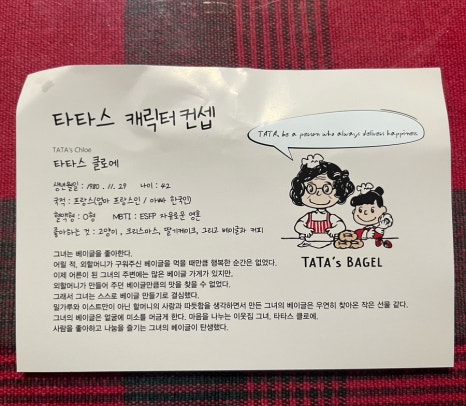 타타스 캐릭터 컨셉
TATA's Chloe
타타스 클로에
생년월일 : 1980. 11. 29 나이 : 42
국적 : 프랑스(엄마 프랑스인 / 아빠 한국인)
혈액형 : O형 MBTI : ESFP 자유로운 영혼
좋아하는 것 : 고양이, 크리스마스, 딸기케이크, 그리고 베이글과 커피
그녀는 베이글을 좋아한다.
어릴 적, 외할머니가 구워주신 베이글을 먹을 때만큼 행복한 순간은 없었다.
이제 어른이 된 그녀의 주변에는 많은 베이글 가게가 있지만,
외할머니가 만들어 주던 베이글만큼의 맛을 찾을 수 없었다.
그래서 그녀는 스스로 베이글 만들기로 결심했다.
밀가루와 이스트만이 아닌 할머니의 사랑과 따뜻함을 생각하면서 만든 그녀의 베이글은 우연히 찾아온 작은 선물 같다.
그녀의 베이글은 얼굴에 미소를 머금게 한다. 마음을 나누는 이웃집 그녀, 타타스 클로에.
사람을 좋아하고 나눔을 즐기는 그녀의 베이글이 탄생했다.
TATA, be a person who always delivers happiness
TATA's BAGEL